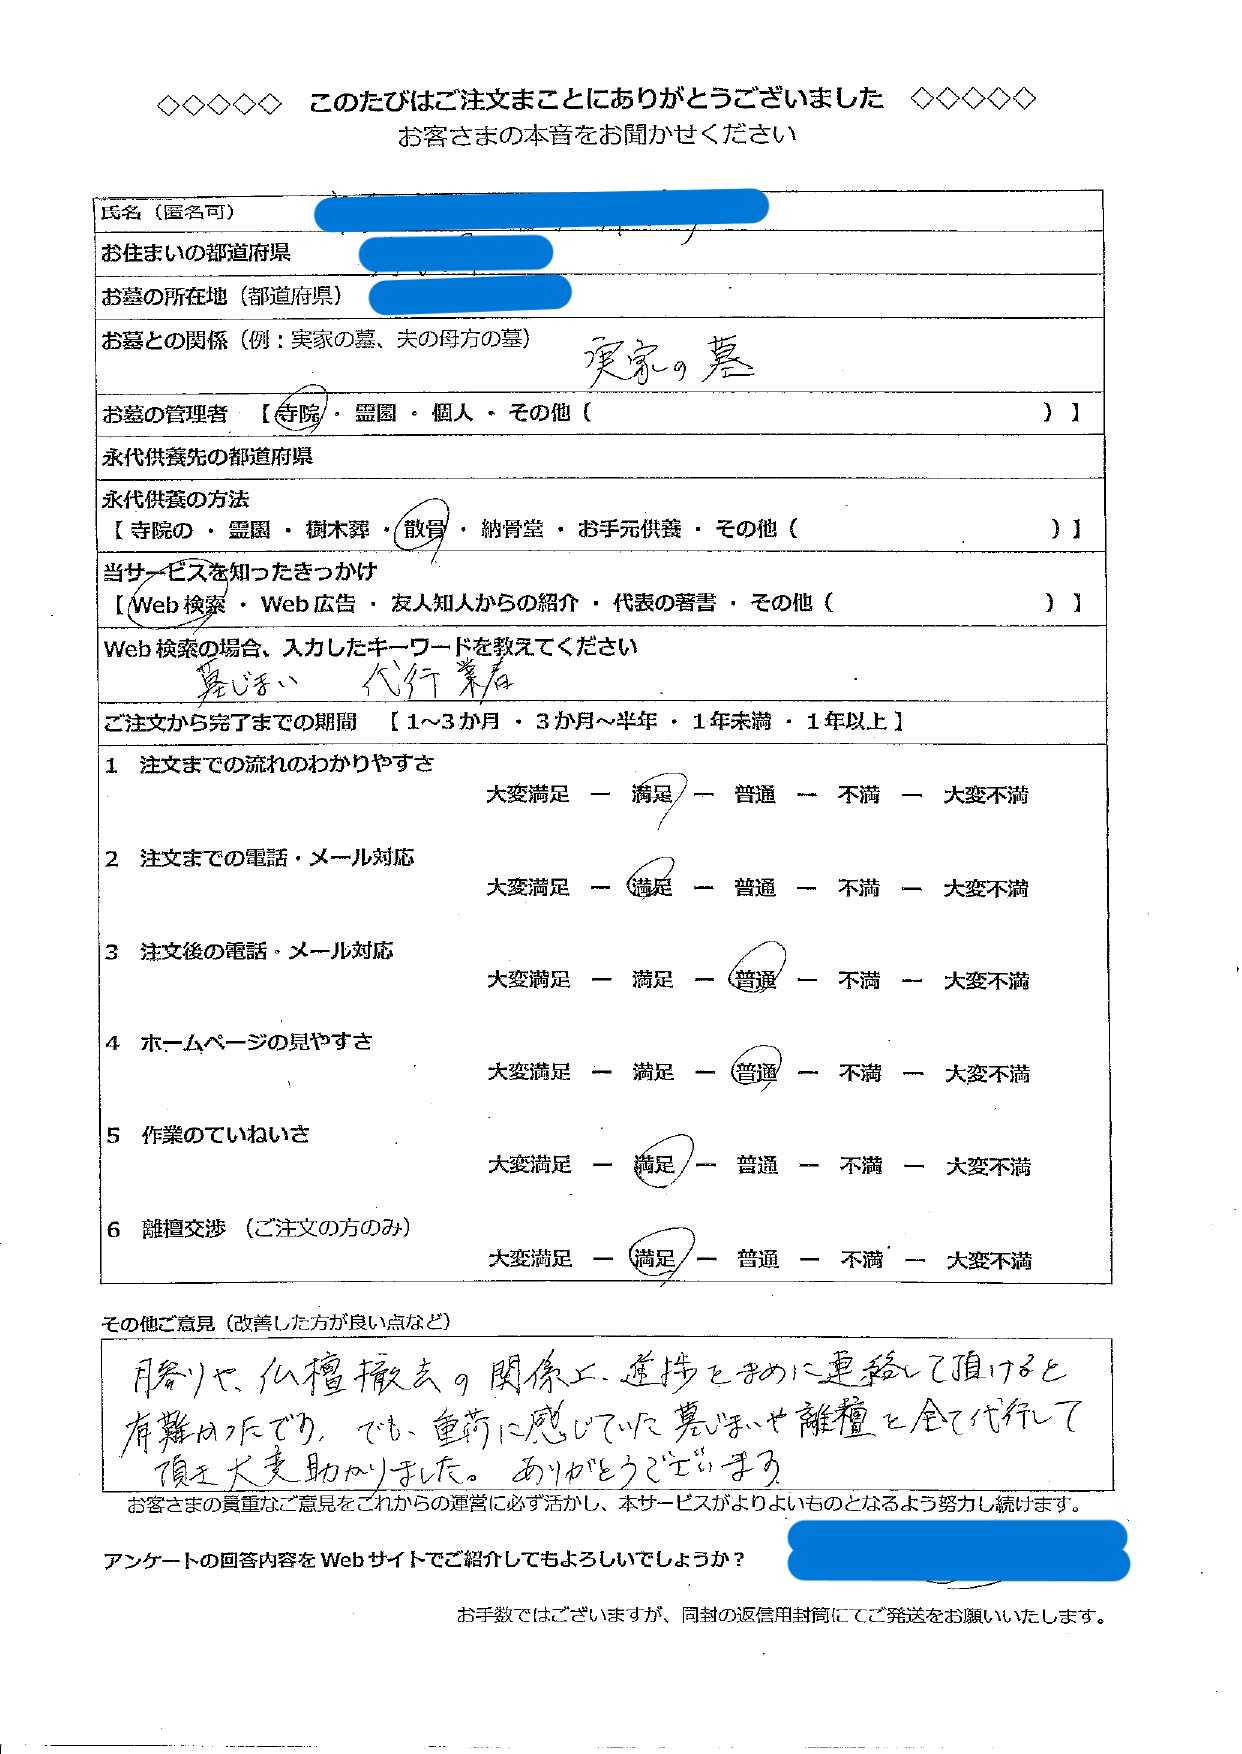 ◇◇◇◇◇ このたびはご注文まことにありがとうございました ◇◇◇◇◇
お客さまの本音をお聞かせください
氏名（匿名可）
お住まいの都道府県
お墓の所在地（都道府県）
お墓との関係（例：実家の墓、夫の母方の墓）
実家の墓
お墓の管理者 【 寺院 ・ 霊園 ・ 個人 ・ その他（ ）】
永代供養先の都道府県
永代供養の方法
【 寺院の ・ 霊園 ・ 樹木葬 ・ 散骨 ・ 納骨堂 ・ お手元供養 ・ その他（ ）】
当サービスを知ったきっかけ
【 Web検索 ・ Web広告 ・ 友人知人からの紹介 ・ 代表の著書 ・ その他（ ）】
Web検索の場合、入力したキーワードを教えてください
墓じまい 代行業者
ご注文から完了までの期間 【 1～3か月 ・ 3か月～半年 ・ 1年未満 ・ 1年以上 】
1 注文までの流れのわかりやすさ
大変満足 ー 満足 ー 普通 ー 不満 ー 大変不満
2 注文までの電話・メール対応
大変満足 ー 満足 ー 普通 ー 不満 ー 大変不満
3 注文後の電話・メール対応
大変満足 ー 満足 ー 普通 ー 不満 ー 大変不満
4 ホームページの見やすさ
大変満足 ー 満足 ー 普通 ー 不満 ー 大変不満
5 作業のていねいさ
大変満足 ー 満足 ー 普通 ー 不満 ー 大変不満
6 離檀交渉 （ご注文の方のみ）
大変満足 ー 満足 ー 普通 ー 不満 ー 大変不満
その他ご意見（改善した方が良い点など）
や、仏壇撤去の関係上、進捗をまめに連絡して頂けると
有難かったです。でも、重荷に感じていた墓じまいや離檀を全て代行して
頂き大変助かりました。ありがとうございます
お客さまの貴重なご意見をこれからの運営に必ず活かし、本サービスがよりよいものとなるよう努力し続けます。
アンケートの回答内容をWebサイトでご紹介してもよろしいでしょうか？
お手数ではございますが、同封の返信用封筒にてご発送をお願いいたします。